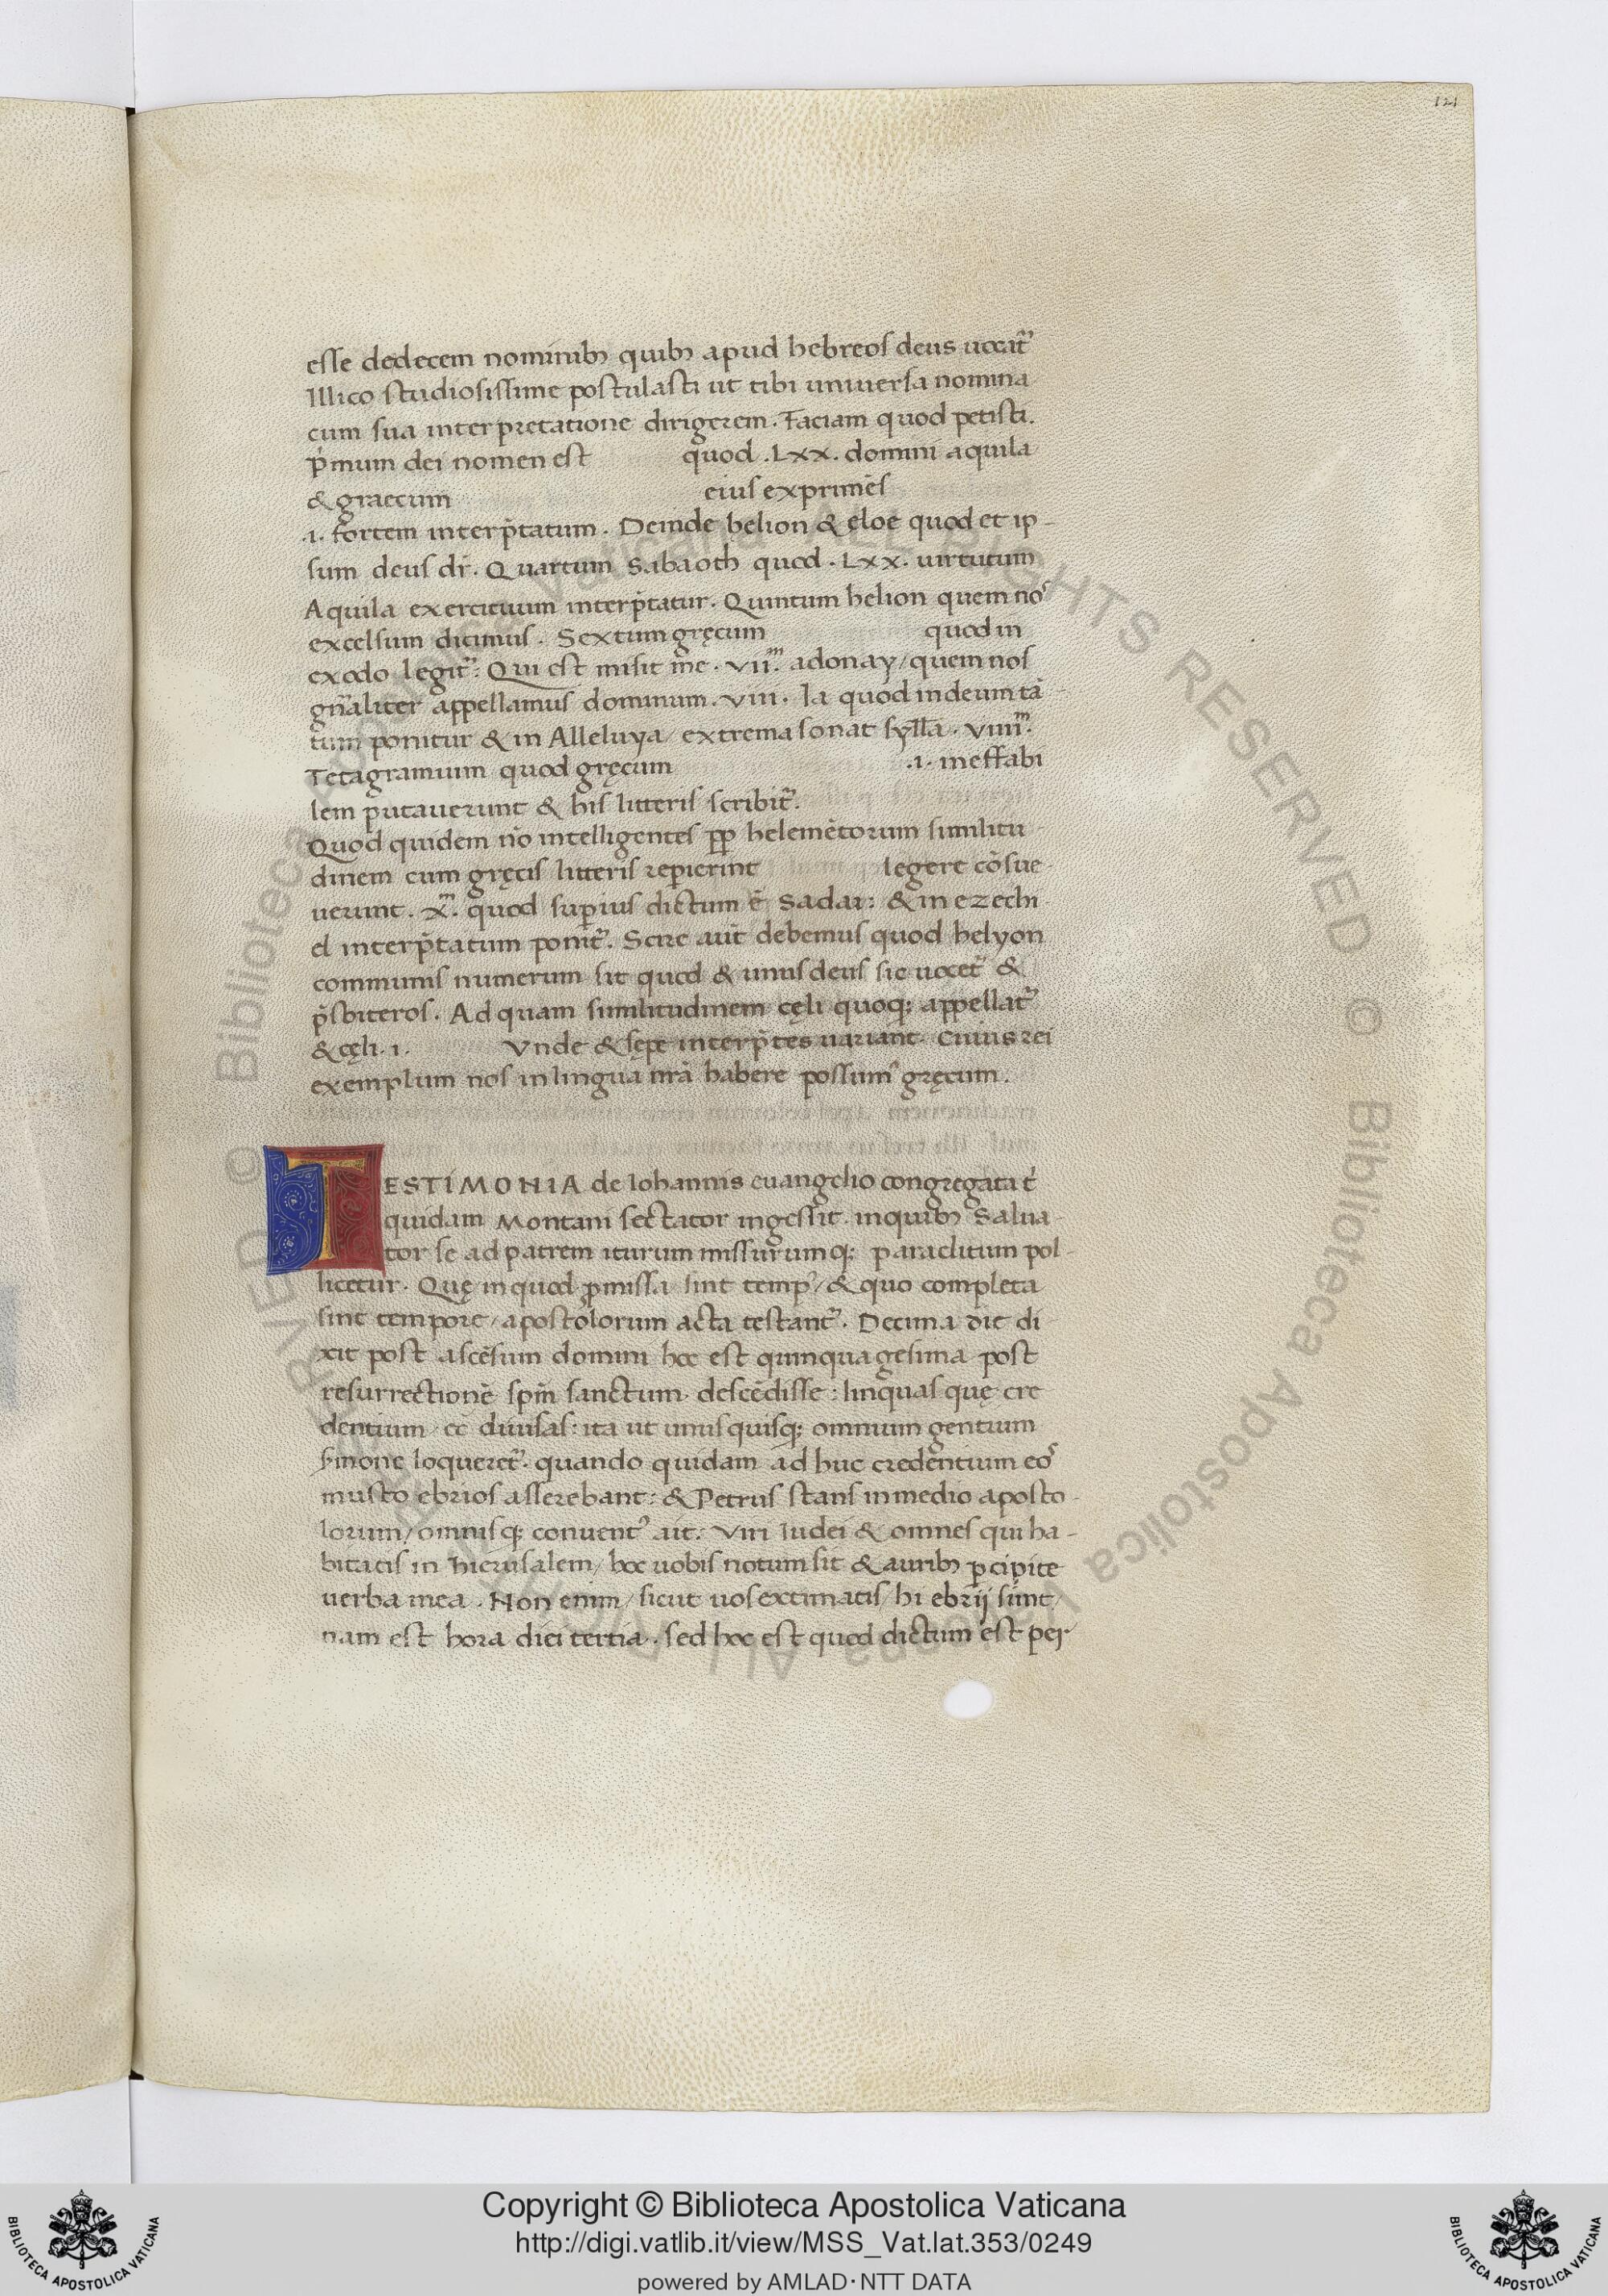 121
esse dedecem nominibꝫ quibꝫ apud hebreos deus uocat᷑
Illico studiosissime postulasti ut tibi uniuersa nomina
cum sua interpretatione dirigerem. Faciam quod petisti.
p̍mum dei nomen est quod .LXX. domini aquila
& graecum eius exprimēs
.i. fortem interp̄tatum. Deinde helion & eloe quod et ip-
sum deus dr̄. Quartum Sabaoth quod .LXX. uirtutum
Aquila exercituum interp̄tatur. Quintum helion quem noˢ
excelsum dicimus. Sextum gręcum quod in
exodo legit᷑: Qui est misit me. VIIᵐ. adonay/ quem nos
gn̄aliter appellamus dominum. VIII. Ia quod in deum tā
tum ponitur & in Alleluya/ extrema sonat syll̄a. VIIIIᵐ.
Tetagramum quod gręcum .i. ineffabi
lem putauerunt & his litteris scribit᷑.
Quod quidem nō intelligentes ꝓp helemētorum similitu
dinem cum gręcis litteris repierint legere cōsue-
uerunt. Xᵐ. quod superius dictum ē Sadai: & in ezechi
el interp̄tatum ponit᷑. Scire aut̄ debemus quod helyon
communis numerum sit quod & unus deus sic uocet᷑ &
p̄sbiteros. Ad quam similitudinem cęli quoqꝫ appellat᷑
& cęli .i. Vnde & sępe interp̄tes uariant. Cuius rei
exemplum nos in lingua nr̄a habere possumꝰ gręcum.
TESTIMONIA de Iohannis euangelio congregata t̍
quidam Montani sectator ingessit. in quibꝫ Salua-
tor se ad patrem iturum missurumqꝫ paraclitum pol-
licetur. Quę in quod ꝓmissa sint tempꝰ/ & quo completa
sint tempore/ apostolorum acta testant᷑. Decima die di
xit post ascēsum domini hoc est quinquagesima post
resurrectionē sp̄m sanctum descēdisse: linguas quę cre
dentium eē diuisas: ita ut unus quisqꝫ omnium gentium
s̄mone loqueret᷑. quando quidam ad huc credentium eoˢ
musto ebrios asserebant: & Petrus stans in medio aposto-
lorum/ omnisqꝫ conuentꝰ ait. Viri Iudei & omnes qui ha-
bitatis in Hierusalem/ hoc uobis notum sit & auribꝫ p̄cipite
uerba mea. Non enim/ sicut uos extimatis/ hi ebrij sunt/
nam est hora diei tertia. sed hoc est quod dictum est per
Copyright © Biblioteca Apostolica Vaticana
http://digi.vatlib.it/view/MSS_Vat.lat.353/0249
powered by AMLAD·NTT DATA
BIBLIOTECA APOSTOLICA VATICANA
BIBLIOTECA APOSTOLICA VATICANA